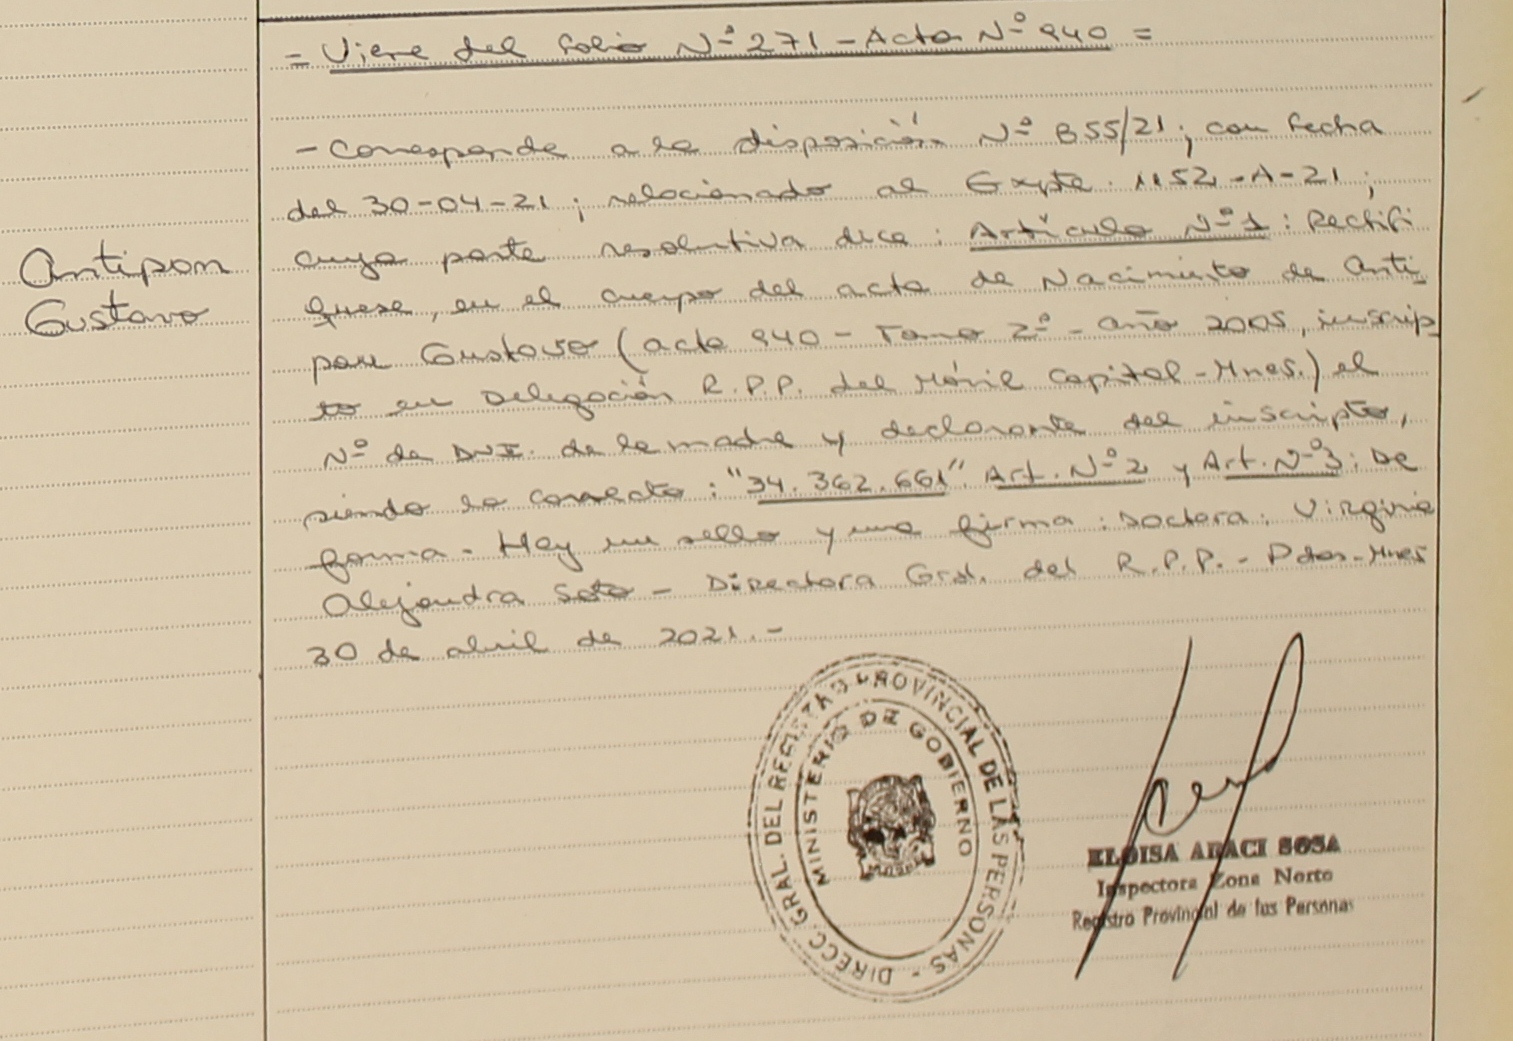 = Viene del folio Nº 271 - Acta Nº 940 =
- Corresponde a la disposición Nº 855/21; con fecha
del 30-04-21; relacionado al Expte. 1152-A-21;
cuya parte resolutiva dice: Artículo Nº 1: Rectifí
Antipon
quese, en el cuerpo del acta de Nacimiento de Anti-
Gustavo
pon Gustavo (acta 940 - Tomo 2º - año 2005, inscrip
to en Delegación R.P.P. del Móvil Capital - Mnes.) el
Nº de DNI. de la madre y declarante del inscripto,
siendo lo correcto: "34.362.661" Art. Nº 2 y Art. Nº 3: De
forma. Hay un sello y una firma: Doctora: Virginia
Alejandra Soto - Directora Gral. del R.P.P. - Pdas - Mnes
30 de abril de 2021.-
DIRECC. GRAL. DEL REGISTRO PROVINCIAL DE LAS PERSONAS -
MINISTERIO DE GOBIERNO
ELOISA ARACI SOSA
Inspectora Zona Norte
Registro Provincial de las Personas